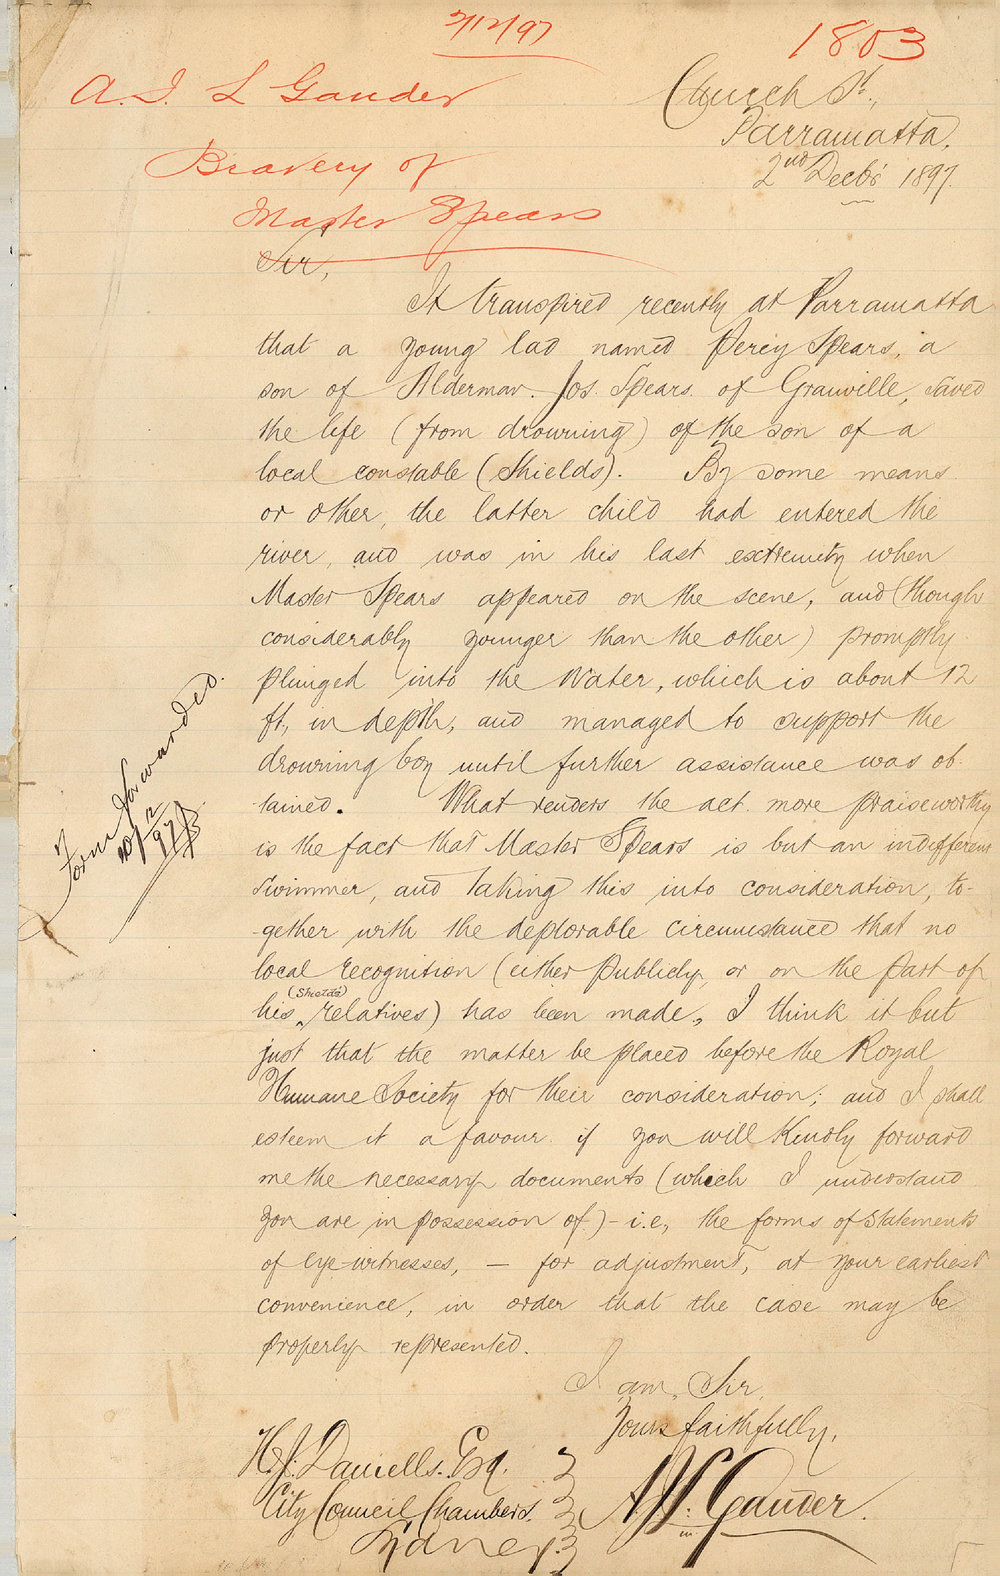 2/12/97
1803
A. J. L Gander
Bravery of
Master Spears
Church St.,
Parramatta,
2nd Decbr 1897.
Sir,
It transpired recently at Parramatta
that a young lad named Percy Spears, a
son of Alderman Jos. Spears of Granville, saved
the life (from drowning) of the son of a
local constable (Shields). By some means
or other, the latter child had entered the
river, and was in his last extremity when
Master Spears appeared on the scene, and (though
considerably younger than the other) promptly
plunged into the water, which is about 12
ft, in depth, and managed to support the
drowning boy until further assistance was ob-
tained. What renders the act more praiseworthy
is the fact that Master Spears is but an indifferent
swimmer, and taking this into consideration, to-
-gether with the deplorable circumstance that no
local recognition (either publicly, or on the part of
(Shields)
his relatives) has been made, I think it but
just that the matter be placed before the Royal
Humane Society for their consideration; and I shall
esteem it a favour if you will kindly forward
me the necessary documents (which I understand
you are in possession of) - i.e, the forms of statements
of eye-witnesses, — for adjustment, at your earliest
convenience, in order that the case may be
properly represented.
I am, Sir,
Yours faithfully,
A J L Gander.
H. J. Daniells. Esq.
City Council Chambers.
Sydney.
Form forwarded.
2/97